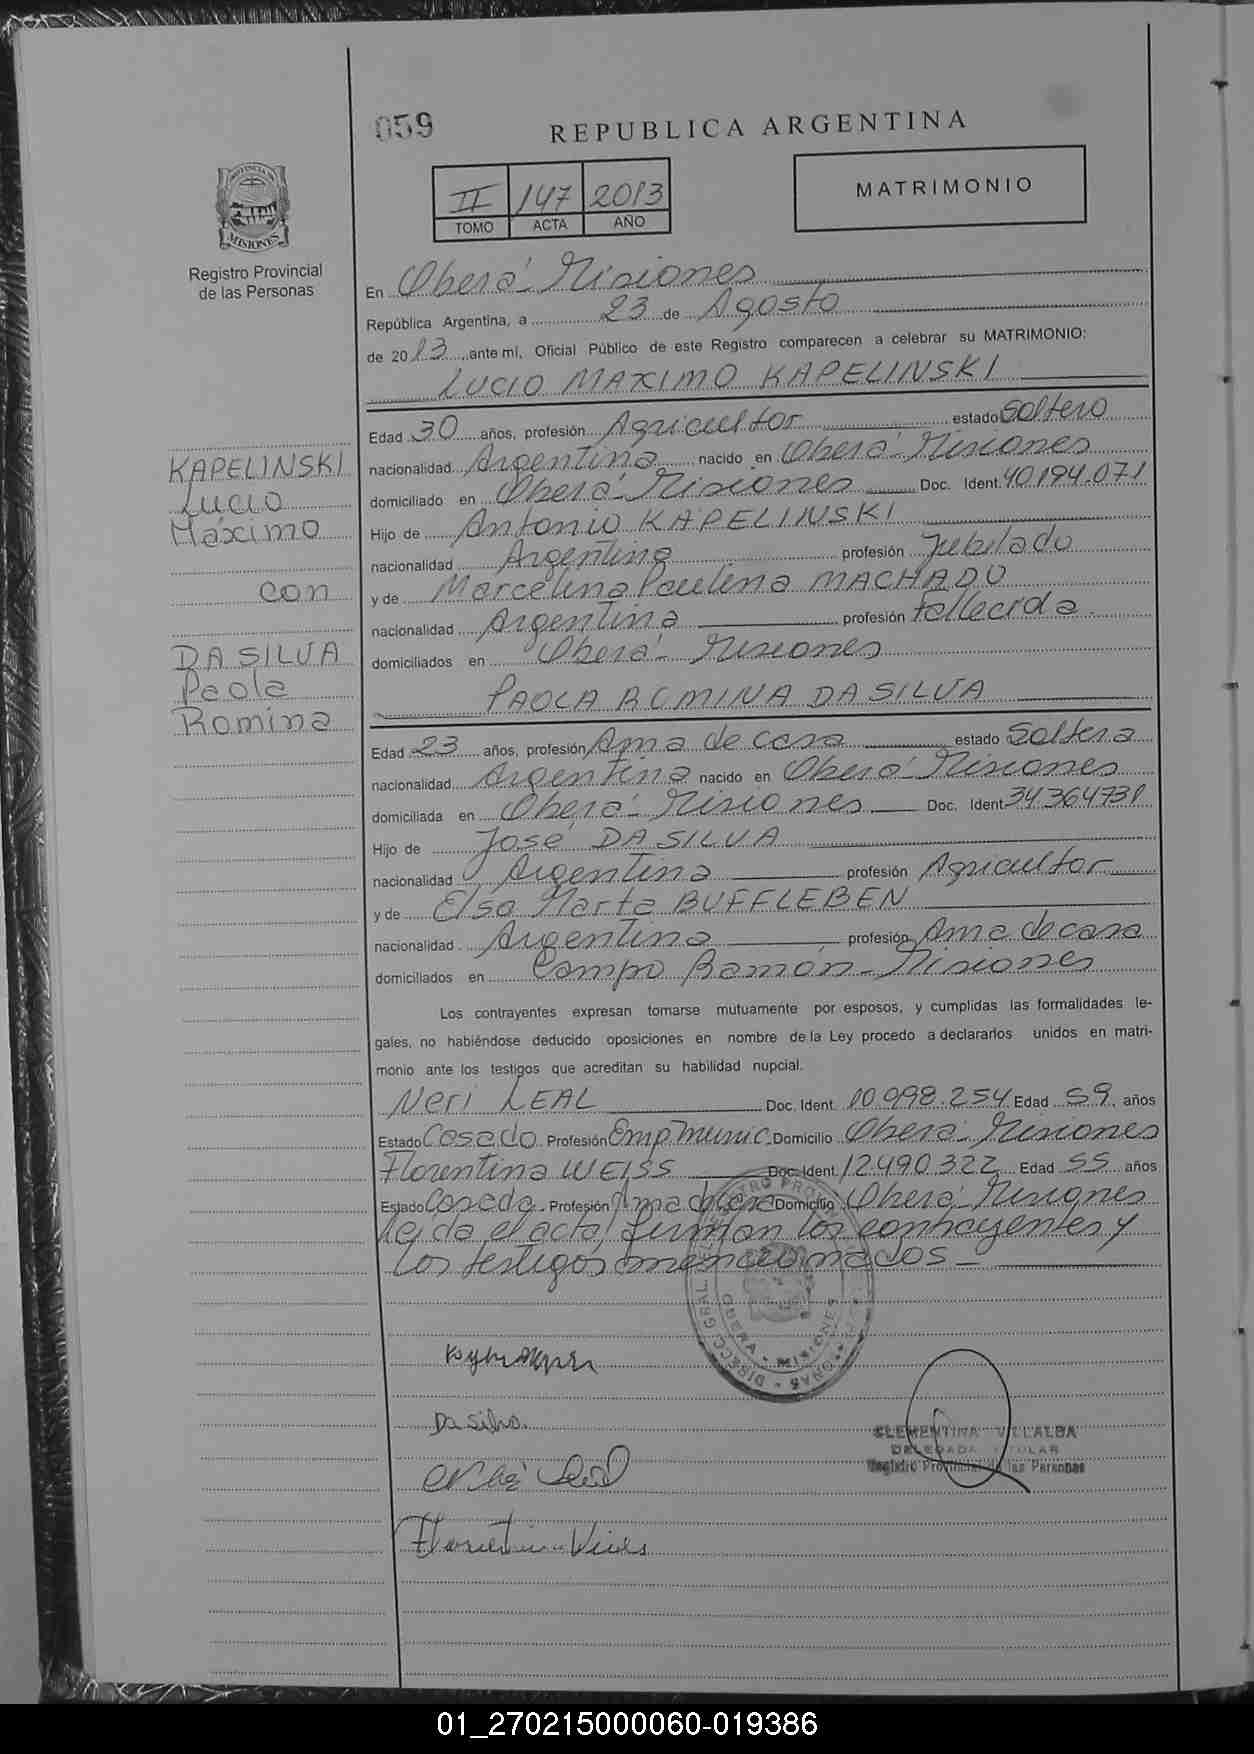 059
REPUBLICA ARGENTINA
PROVINCIA DE
MISIONES
Registro Provincial
de las Personas
II 147 2013
TOMO ACTA AÑO
MATRIMONIO
En Oberá - Misiones
República Argentina, a 23 de Agosto
de 2013 ante mí, Oficial Público de este Registro comparecen a celebrar su MATRIMONIO:
LUCIO MAXIMO KAPELINSKI
KAPELINSKI
Lucio
Máximo
con
DA SILVA
Paola
Romina
Edad 30 años, profesión Agricultor estado Soltero
nacionalidad Argentina nacido en Oberá - Misiones
domiciliado en Oberá - Misiones Doc. Ident. 40.194.071
Hijo de Antonio KAPELINSKI
nacionalidad Argentina profesión Jubilado
y de Marcelina Paulina MACHADO
nacionalidad Argentina profesión Fallecida
domiciliados en Oberá - Misiones
PAOLA ROMINA DA SILVA
Edad 23 años, profesión Ama de casa estado Soltera
nacionalidad Argentina nacido en Oberá - Misiones
domiciliada en Oberá - Misiones Doc. Ident. 34.364.731
Hijo de José DA SILVA
nacionalidad Argentina profesión Agricultor
y de Elsa Marta BUFFLEBEN
nacionalidad Argentina profesión Ama de casa
domiciliados en Campo Ramón - Misiones
Los contrayentes expresan tomarse mutuamente por esposos, y cumplidas las formalidades le-
gales, no habiéndose deducido oposiciones en nombre de la Ley procedo a declararlos unidos en matri-
monio ante los testigos que acreditan su habilidad nupcial.
Neri LEAL Doc. Ident. 10.998.254 Edad 59 años
Estado Casado Profesión Emp. Munic. Domicilio Oberá - Misiones
Florentina WEISS Doc. Ident. 12.490.322 Edad 55 años
Estado Casada Profesión Ama de casa Domicilio Oberá - Misiones
Leída el acta, firman los contrayentes y
los testigos mencionados -
OBERA - MISIONES
Da Silva.
CLEMENTINA VILLALBA
DELEGADA TITULAR
Registro Provincial de las Personas
01_270215000060-019386